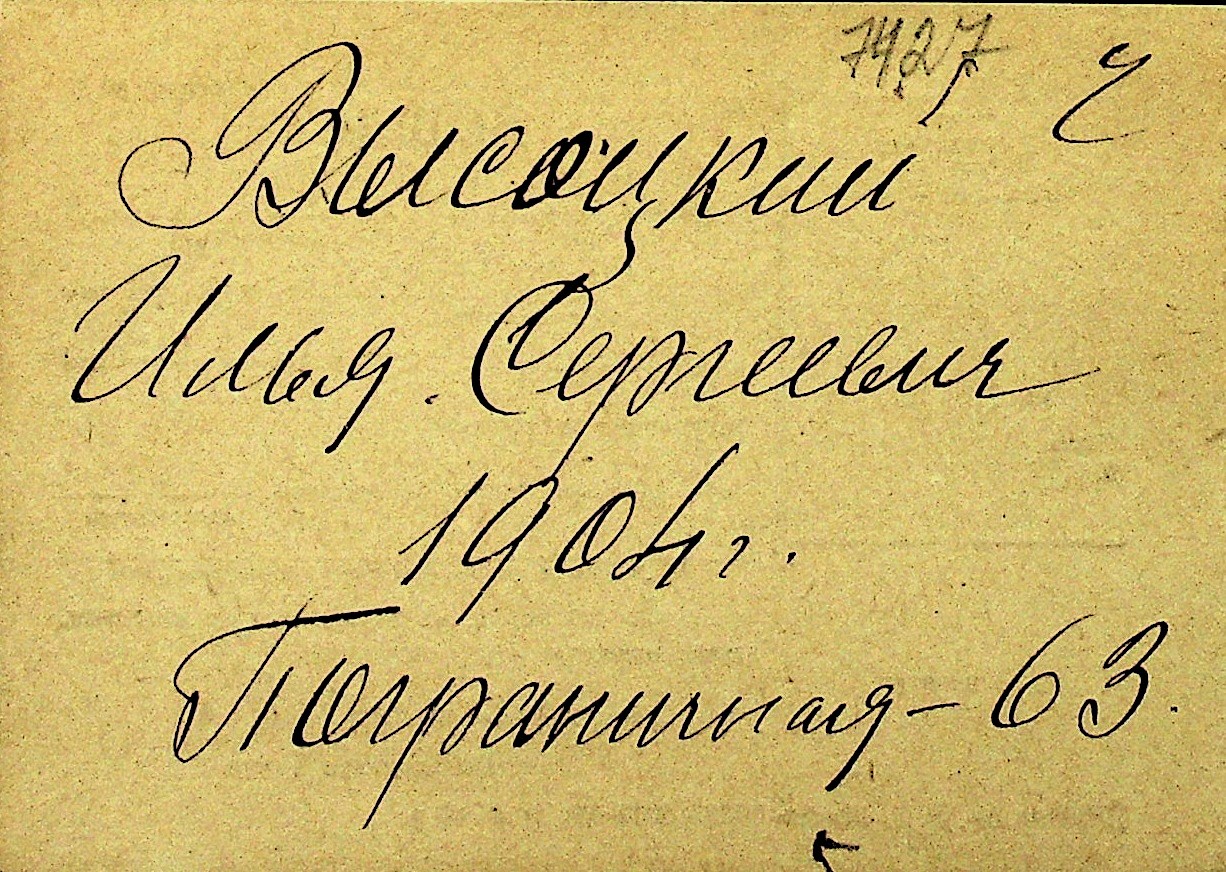 7427 ч
Высоцкий
Илья. Сергеевич
1904 г.
Пограничная - 63.